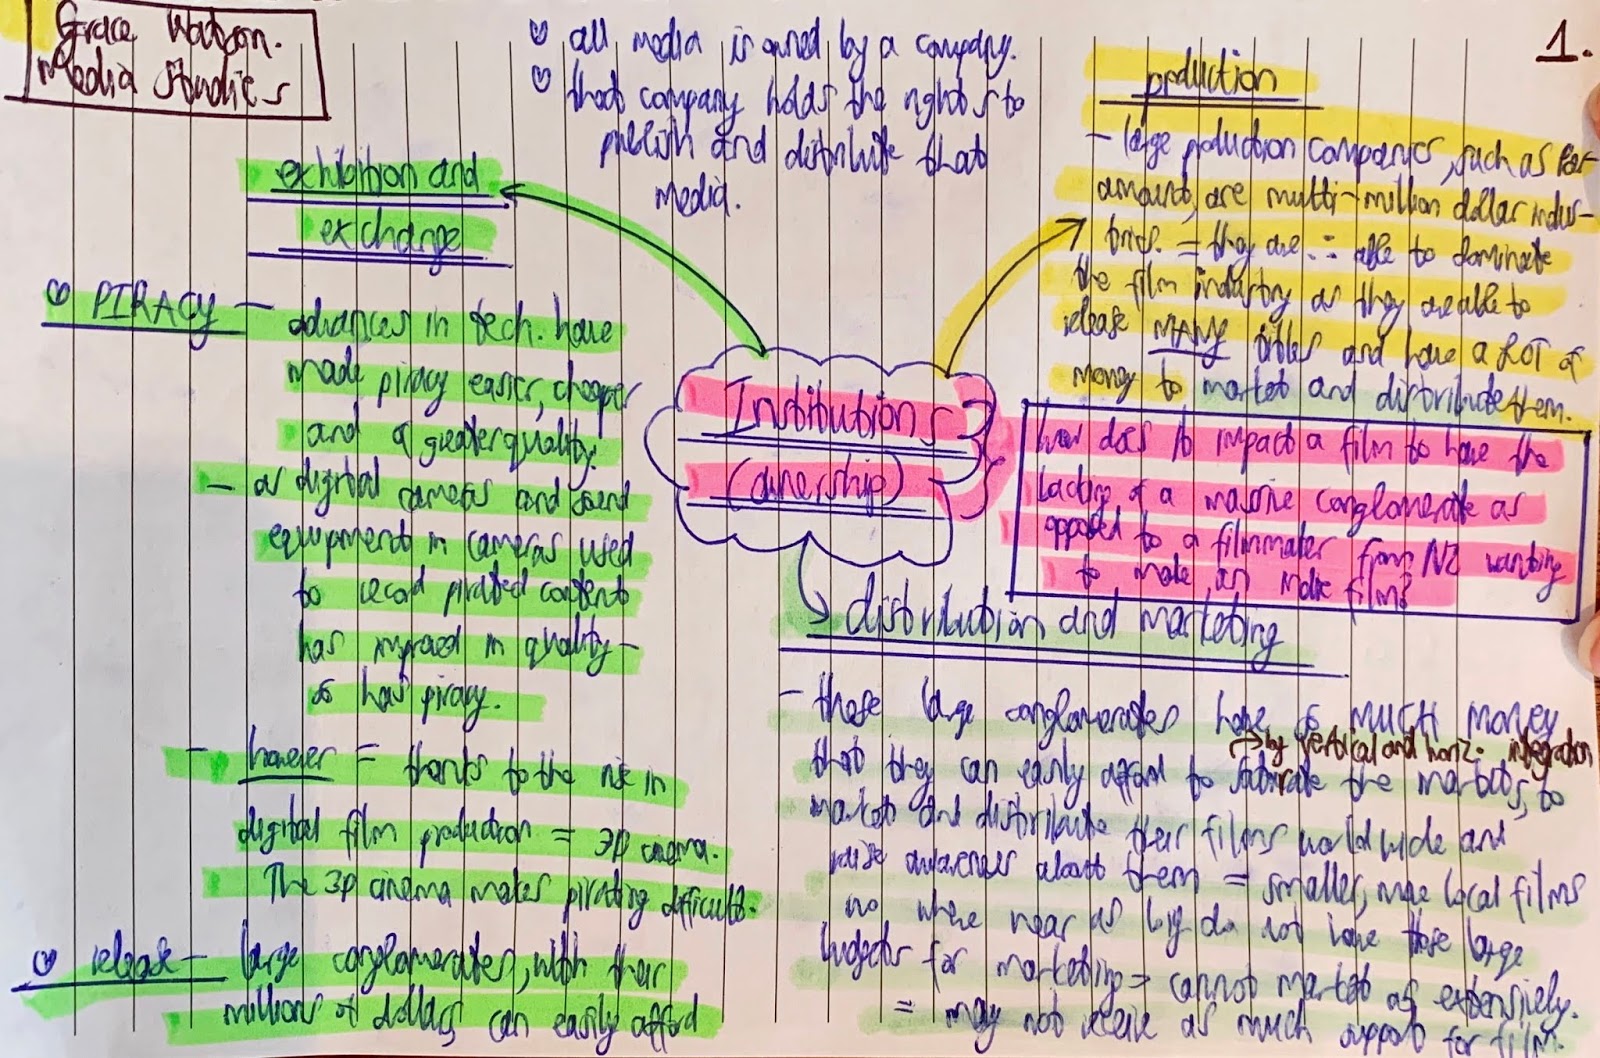 Grace Watson.
Media Studies
1.
all media is owned by a company.
that company holds the rights to
publish and distribute that
media.
exhibition and
exchange
PIRACY – advances in tech. have
made piracy easier, cheaper
and a greater quality.
– as digital cameras and sound
equipment in cameras used
to record pirated content
has improved in quality –
so has piracy.
– however = thanks to the rise in
digital film production = 3D cinema.
The 3D cinema makes pirating difficult.
release – large conglomerates, with their
millions of dollars, can easily afford
production
– large production companies, such as Par-
amount, are multi-million dollar indus-
tries. = they are ∴ able to dominate
the film industry as they are able to
release MANY titles and have a LOT of
money to market and distribute them.
Institutions
(ownership)
how does it impact a film to have the
backing of a massive conglomerate as
opposed to a filmmaker from NZ wanting
to make an indie film?
distribution and marketing
– these large conglomerates have so MUCH MONEY
→ by vertical and horiz. integration
that they can easily afford to saturate the markets, to
market and distribute their films worldwide and
raise awareness about them = smaller, more local films
no where near as big do not have these large
budgets for marketing = cannot market as extensively.
= may not receive as much support for film.